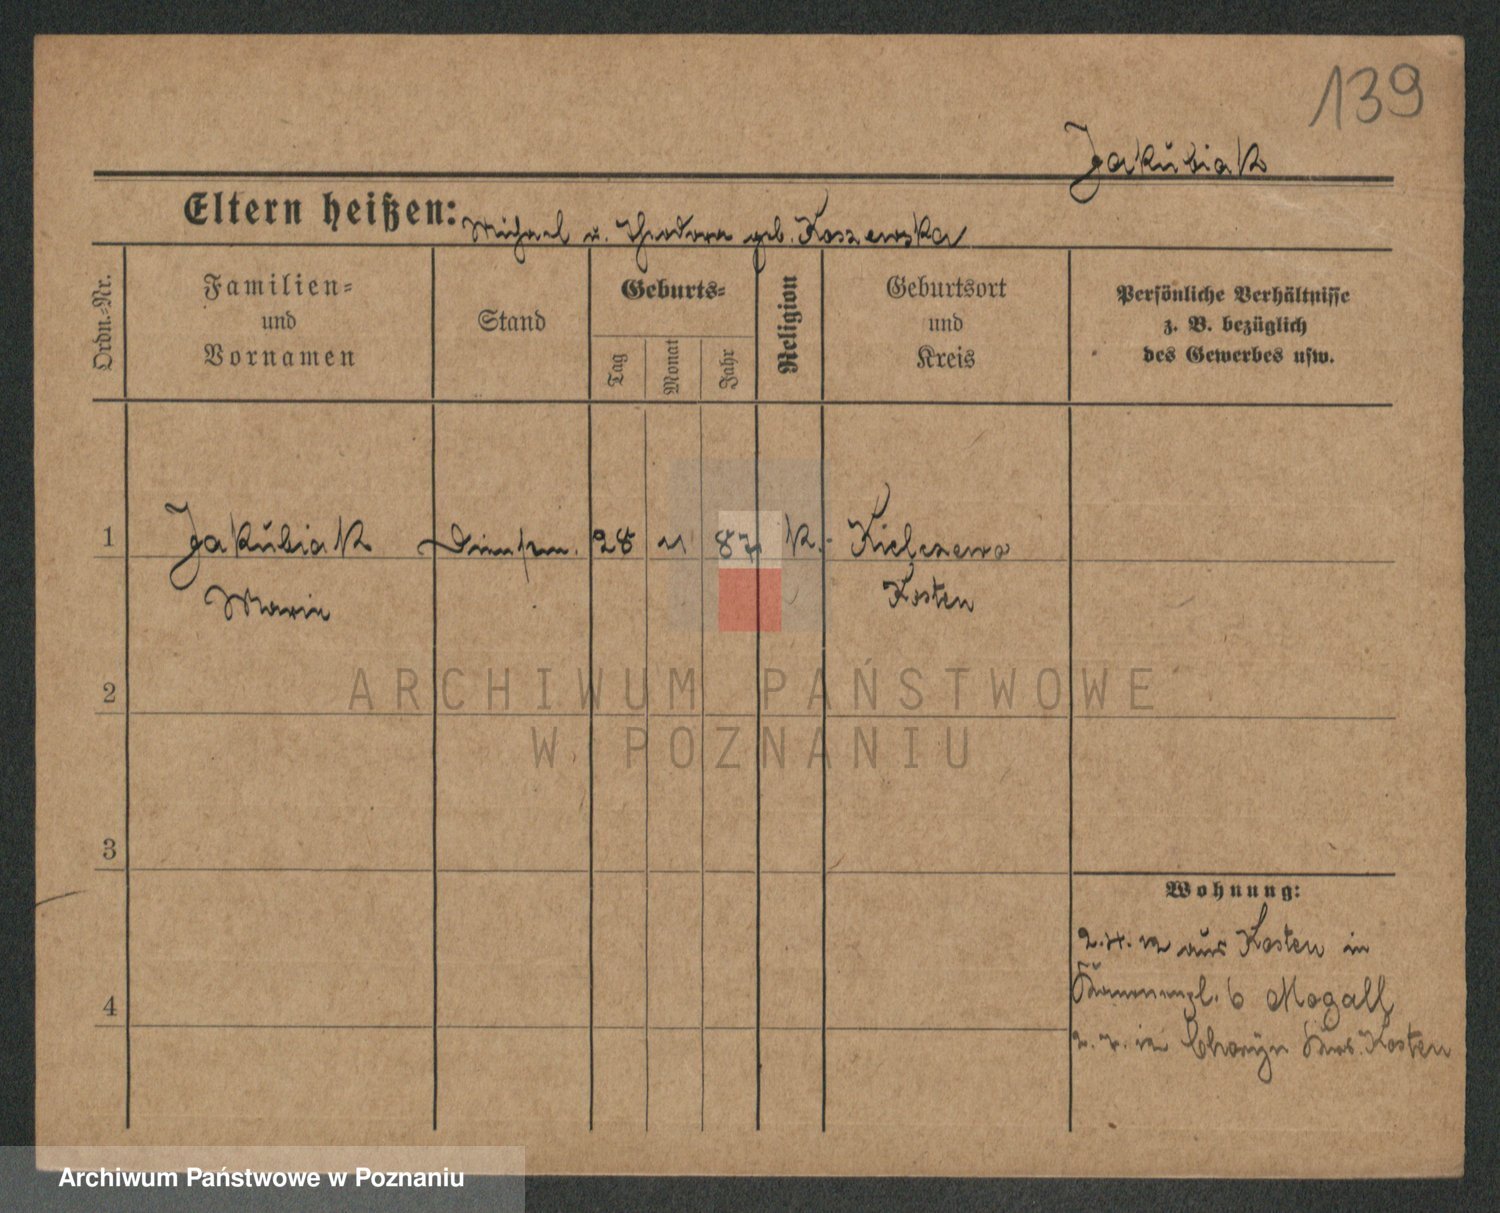 139
Jakubiak
Eltern heißen: Michael u. Theodora geb. Koszewska
Ordn.-Nr.
Familien-
und
Vornamen
Stand
Geburts-
Tag
Monat
Jahr
Religion
Geburtsort
und
Kreis
Persönliche Verhältnisse
z. B. bezüglich
des Gewerbes usw.
1 Jakubiak 28 87 k. Kielczewo
Marie Kosten
ARCHIWUM PAŃSTWOWE
W POZNANIU
2
3
4
Wohnung:
2.4.12 aus Kosten in
6 Mogall
2.7.12 Choryn Krs. Kosten
Archiwum Państwowe w Poznaniu